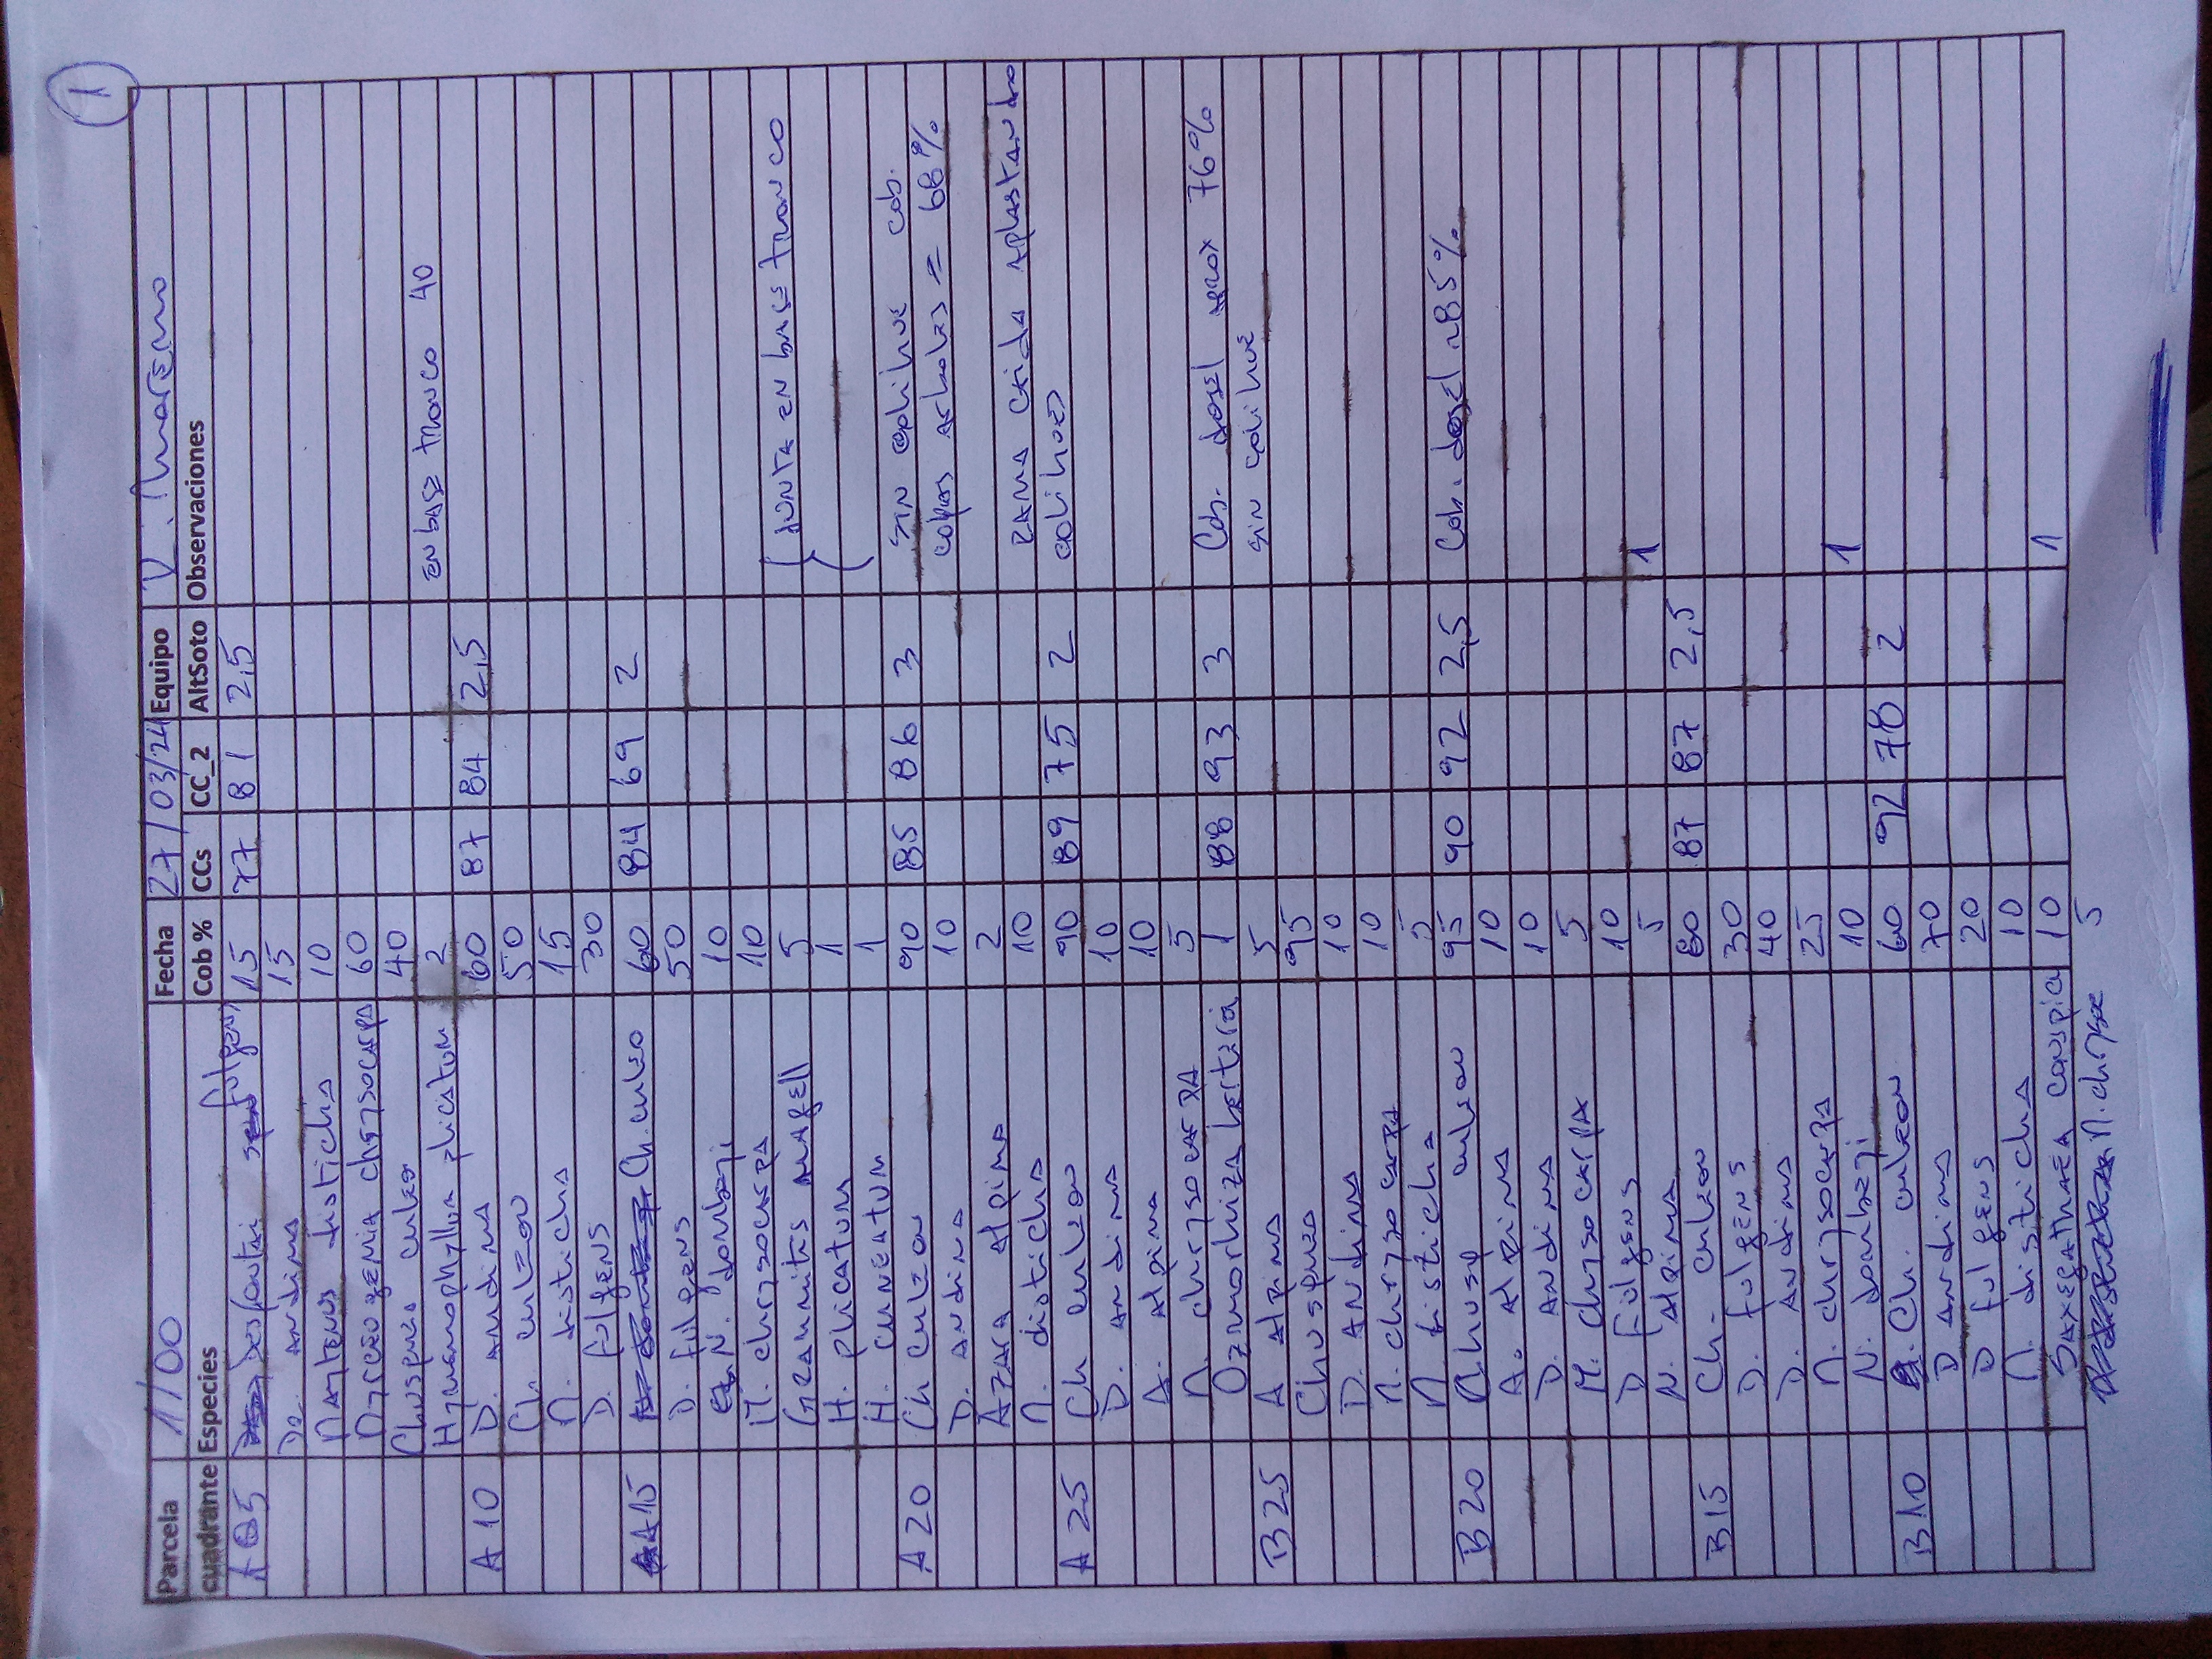 1
Parcela 1/00 Fecha 27/03/24 Equipo D. Moreno
cuadrante Especies Cob % CCs CC_2 AltSoto Observaciones
A 05 Desfontai fulgens 15 77 81 2,5
Dr. andina 15
Maytenus disticha 10
Myrceogenia chrysocarpa 60
Chusquea culeo 40
Hymenophyllum plicatum 2 EN base tronco 40
A 10 D. andina 60 87 84 2,5
Ch. culeou 50
M. disticha 15
D. fulgens 30
A15 Ch. culeo 60 84 69 2
D. fulgens 50
N. dombeyi 10
M. chrysocarpa 10
Grammitis magell 5 JUNTA EN base tronco
H. plicatum 1
H. cuneatum 1
A 20 Ch culeou 90 85 86 3 SIN colihue cob.
D. andina 10 copas arboles = 68%
Azara alpina 2
M. disticha 10 RAMA caida aplastando
A 25 Ch culeou 90 89 75 2 colihues
D. andina 10
A. alpina 10
M. chrysocarpa 5
Ozmorhiza berteroi 1 88 93 3 Cob. dosel aprox 76%
B25 A alpina 5 sin colihue
Chusquea 95
D. andina 10
M. chrysocarpa 10
M. disticha 5
B20 Chusq culeou 95 90 92 2,5 Cob. dosel ~85%
A. alpina 10
D. andina 10
M. chrysocarpa 5
D fulgens 10
N. alpina 5 1
B15 Ch. culeou 80 87 87 2,5
D. fulgens 30
D. andina 40
M. chrysocarpa 25
N. dombeyi 10 1
B10 Ch. culeou 60 92 78 2
D andina 70
D fulgens 20
M. disticha 10
Saxegathaea conspicu 10 1
M. chryso 5